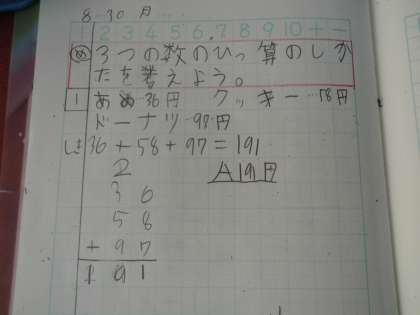 8-30 月
1 2 3 4 5 6 7 8 9 10 + −
め 3つの数のひっ算のしか
たを考えよう。
1 あめ…36円 クッキー…58円
ドーナツ…97円
しき36+58+97=191
A191円
2
36
58
+97
191